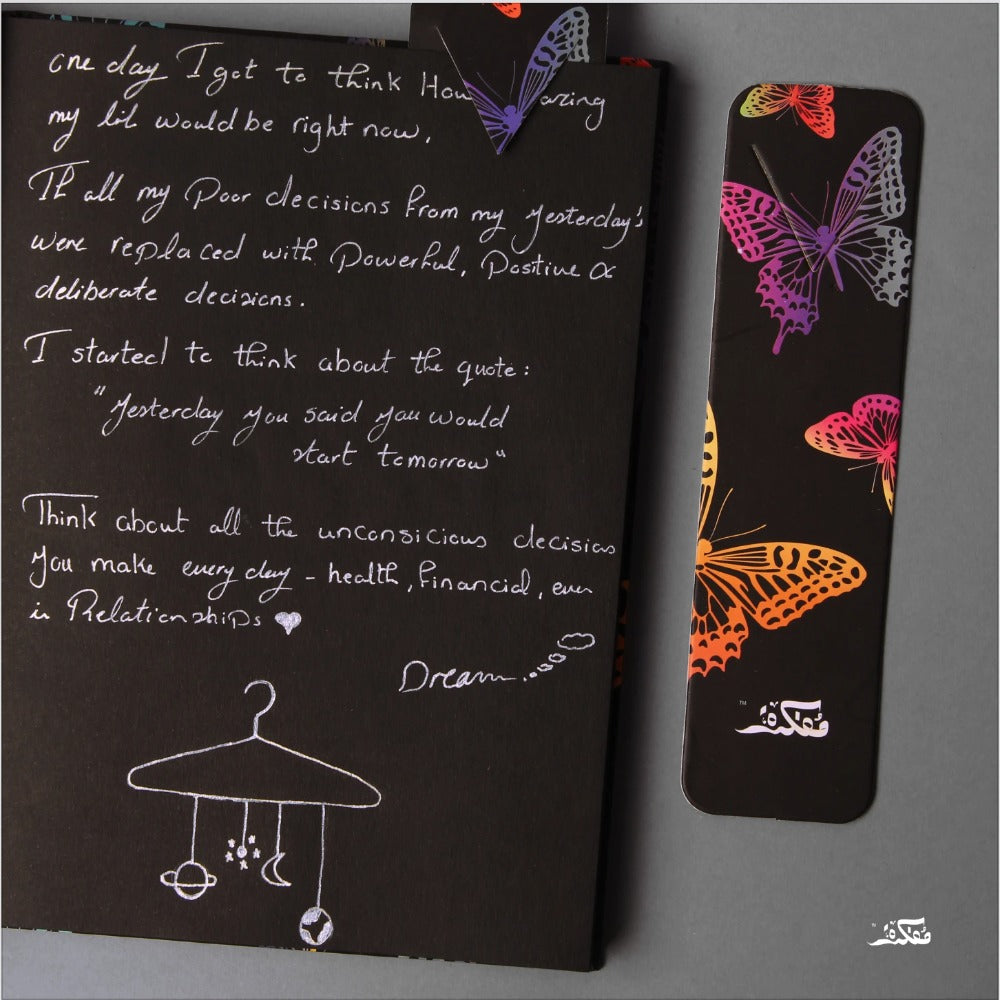 one day I got to think How azing
my lif would be right now,
If all my Poor decisions from my yesterday's
were replaced with Powerful, Positive &
deliberate decisions.
I started to think about the quote:
"Yesterday you said you would
start tomorrow"
Think about all the unconsicious decisions
you make every day - health, financial, even
in Relationships
Dream...
مفكرة
TM
مفكرة
TM